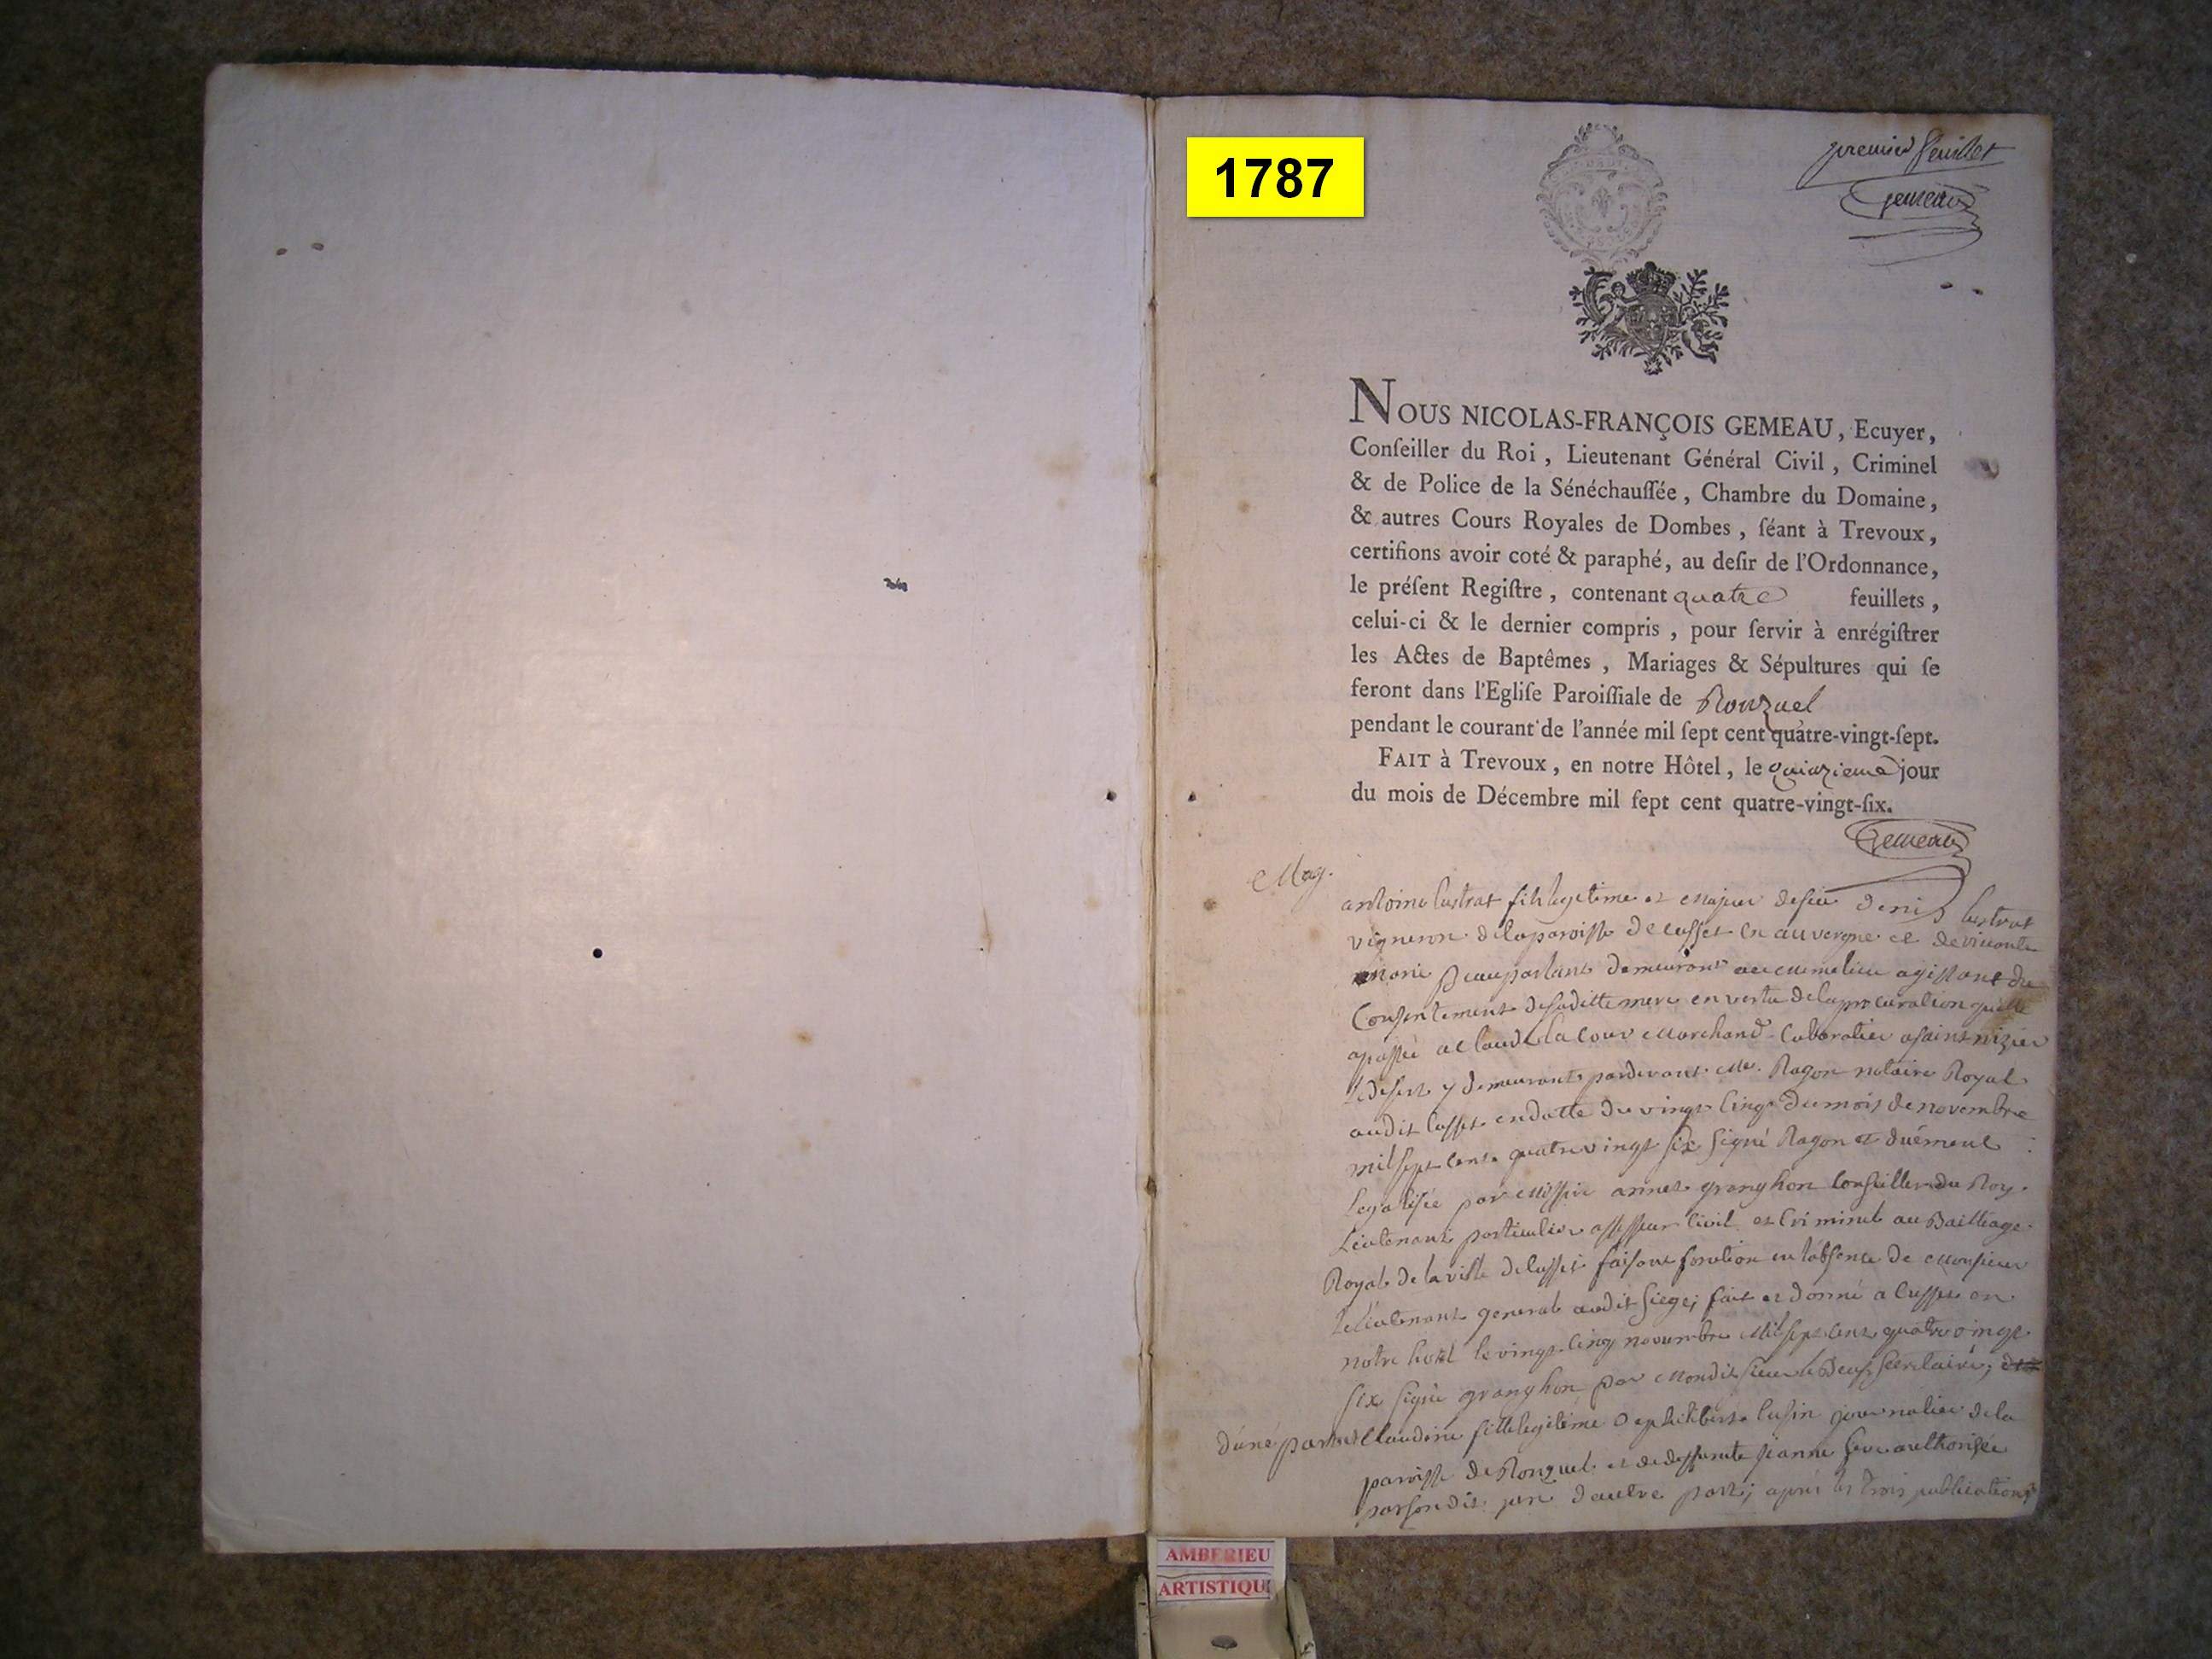 1787
premier feuillet
Gemeau
NOUS NICOLAS-FRANÇOIS GEMEAU, Ecuyer,
Conſeiller du Roi, Lieutenant Général Civil, Criminel
& de Police de la Sénéchauſſée, Chambre du Domaine,
& autres Cours Royales de Dombes, ſéant à Trevoux,
certifions avoir coté & paraphé, au deſir de l'Ordonnance,
le préſent Regiſtre, contenant quatre feuillets,
celui-ci & le dernier compris, pour ſervir à enrégiſtrer
les Actes de Baptêmes, Mariages & Sépultures qui ſe
feront dans l'Egliſe Paroiſſiale de Ronzuel
pendant le courant de l'année mil ſept cent quatre-vingt-ſept.
FAIT à Trevoux, en notre Hôtel, le quinzieme jour
du mois de Décembre mil ſept cent quatre-vingt-ſix.
Gemeau
Mag.
antoine lustrat fils legitime et majeur de feu denis lustrat
vigneron de la paroisse de cusset en auvergne et de vivante
marie demeurant au meme lieu agissant du
Consentement de sa ditte mere en vertu de la procuration quelle
a passée a claude la cour marchand cabaratier a saint nizier
le desert y demeurant pardevant Me. Ragon notaire Royal
audit cusset en datte du vingt cinq du mois de novembre
mil sept cent quatre vingt six signé Ragon et duément
legalisée par messire annet granghon conseiller du Roy
Lieutenant particulier assesseur civil et criminel au Bailliage
Royal de la ville de cusset faisant fonction en l'absence de monsieur
le lieutenant general audit siege; fait et donné a cusset en
notre hotel le vingt cinq novembre mil sept cent quatre vingt
six signé granghon par mondit sieur secretaire;
d'une part et Claudine fille legitime de philibert cusin journalier de la
paroisse de Ronzuel et de deffunte jeanne authorisée
par son dit pere d'autre part; après les trois publications
AMBERIEU
ARTISTIQUE